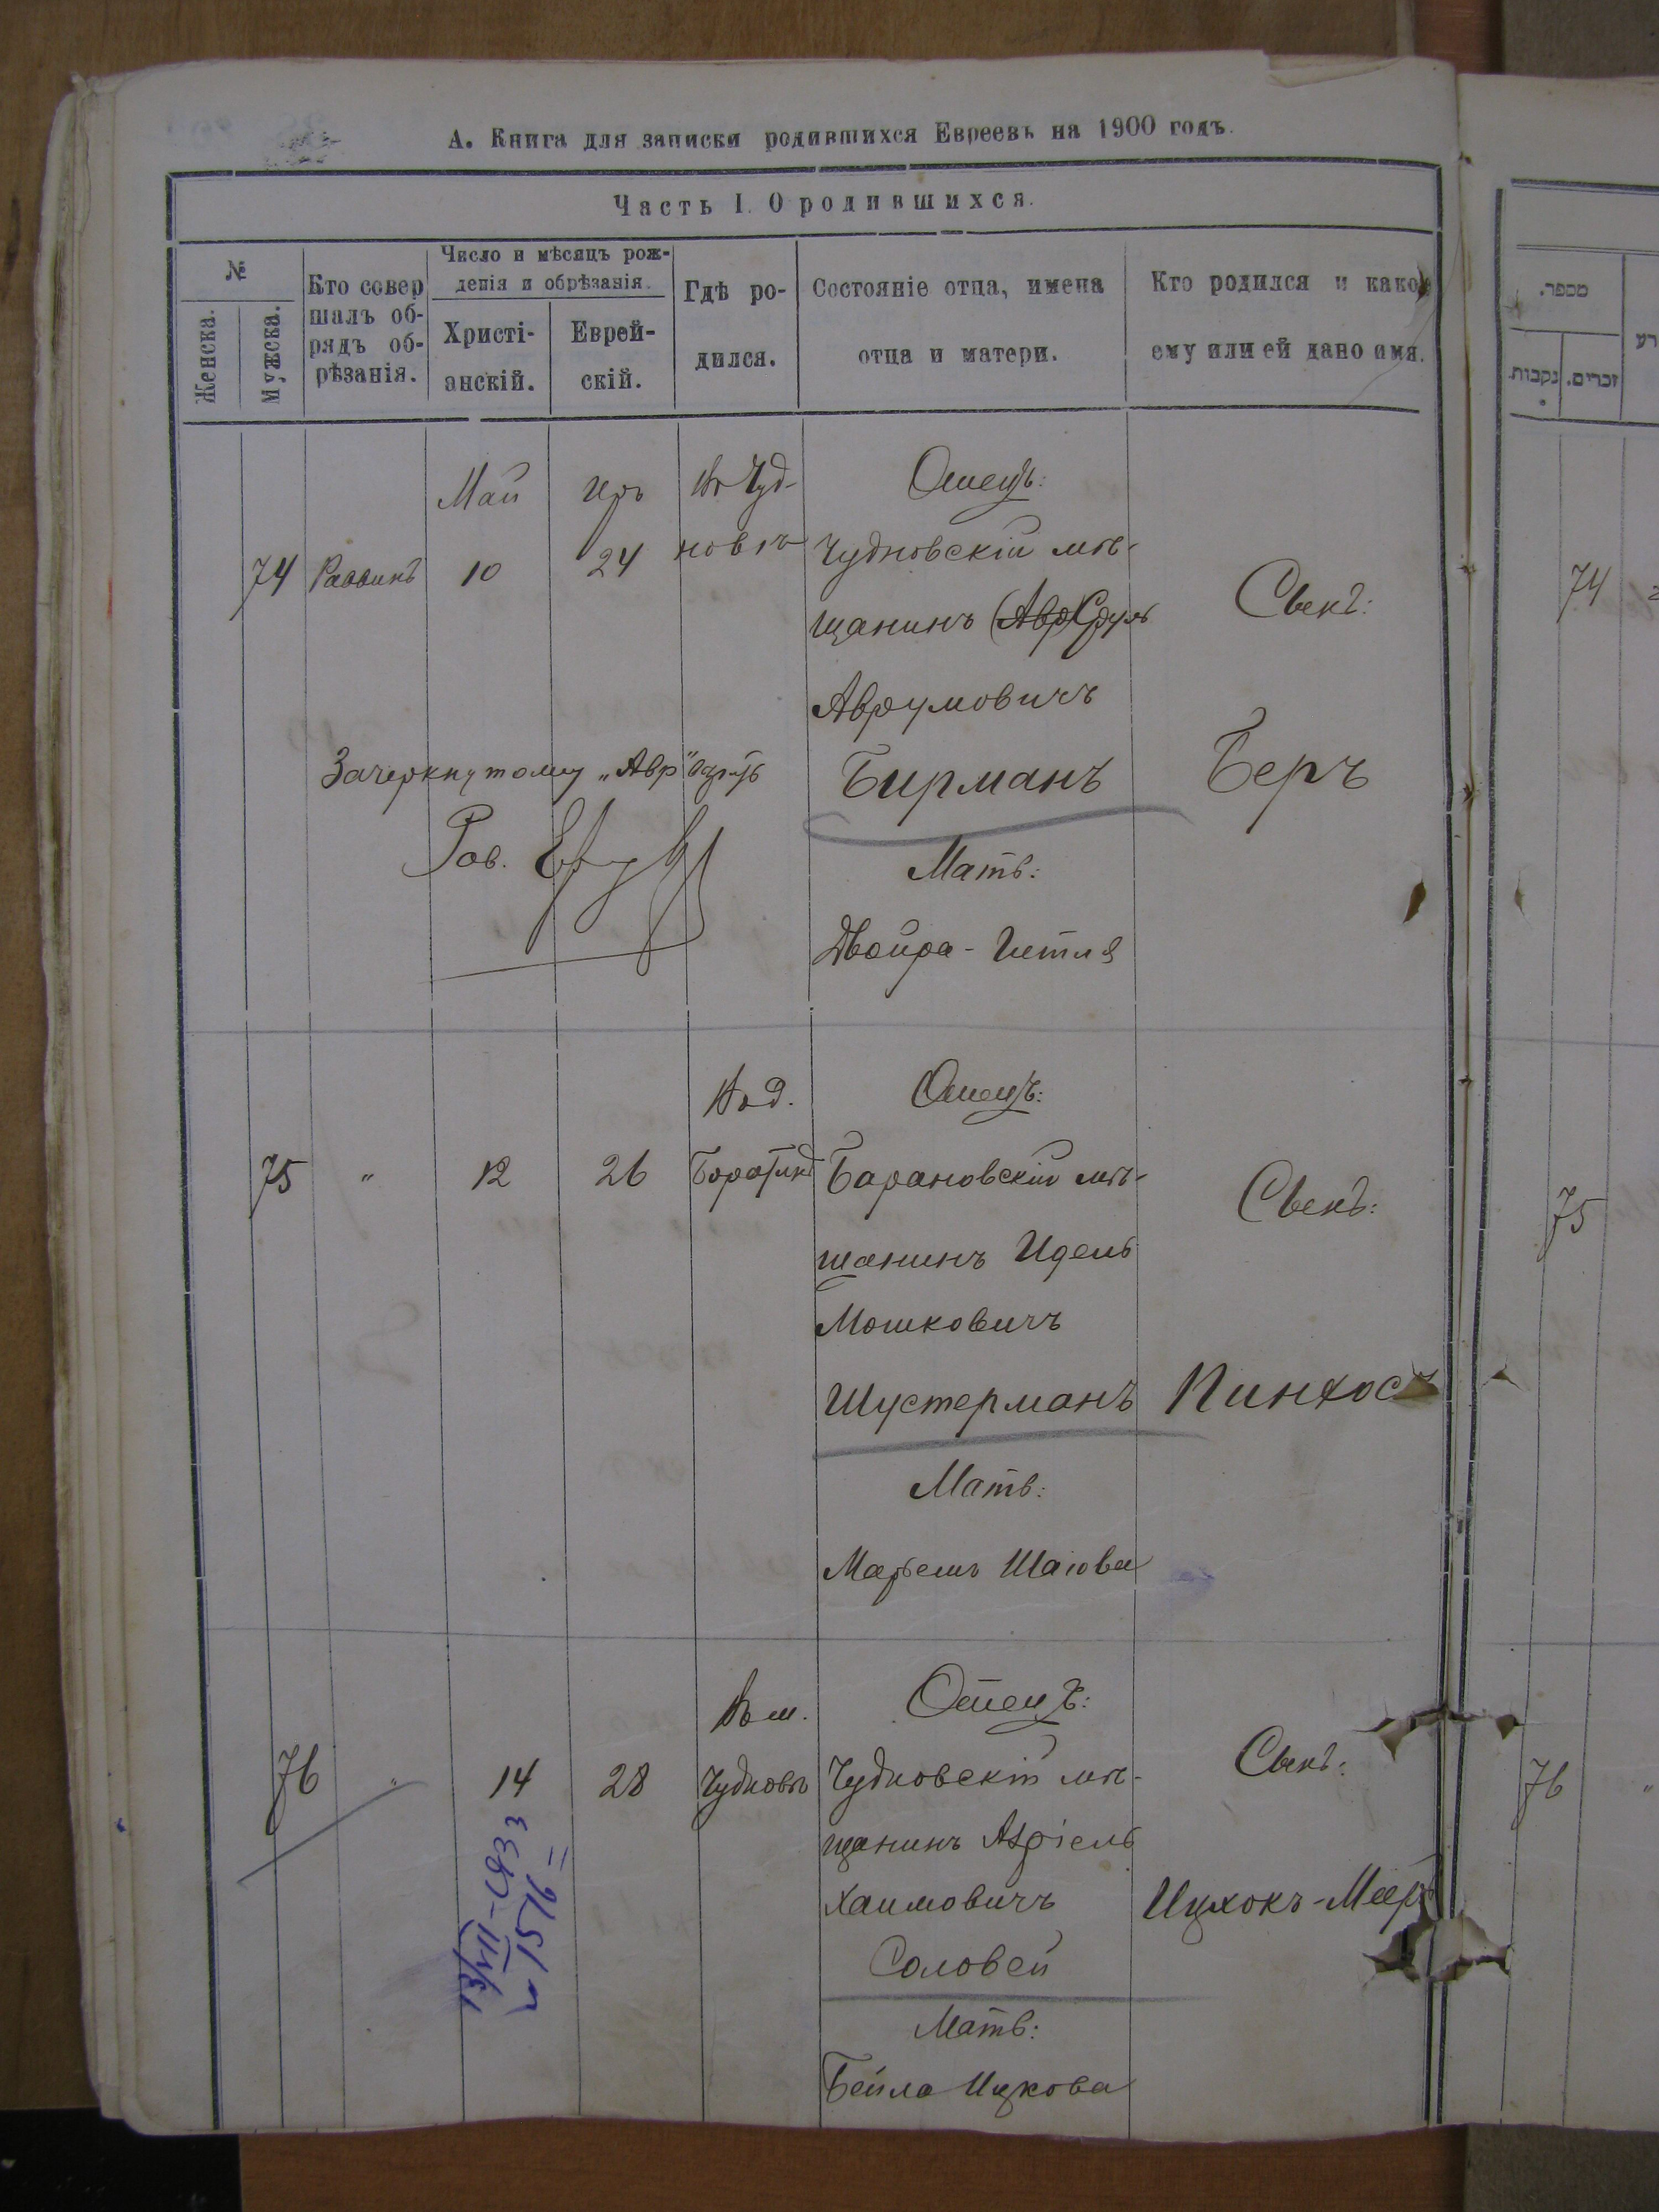 А. Книга для записки родившихся Евреевъ на 1900 годъ.
Часть I. О родившихся.
№
Женска.
Мужска.
Кто совер
шалъ об-
рядъ об-
рѣзанія.
Число и мѣсяцъ рож-
денія и обрѣзанія.
Христі-
анскій.
Еврей-
скій.
Гдѣ ро-
дился.
Состояніе отца, имена
отца и матери.
Кто родился и какое
ему или ей дано имя.
74
Раввинъ
Май
10
Иръ
24
Въ Чуд-
новѣ
Отецъ:
Чудновскій мѣ-
щанинъ (Авр) Сруль
Аврумовичъ
Бирманъ
Мать:
Двойра-Гитля
Сынъ:
Беръ
Зачеркнутому „Авр"
Рав.
75
"
12
26
Въ д.
Отецъ:
Барановскій мѣ-
щанинъ Идель
Мошковичъ
Шустерманъ
Мать:
Марьемъ Шаюва
Сынъ:
Пинхосъ
76
"
14
28
Въ м.
Чудновѣ
Отецъ:
Чудновскій мѣ-
щанинъ Азріель
Хаимовичъ
Соловей
Мать:
Бейла Ицкова
Сынъ:
Ицхокъ-Меер
מספר.
נקבות.
זכרים.
74
75
76
"